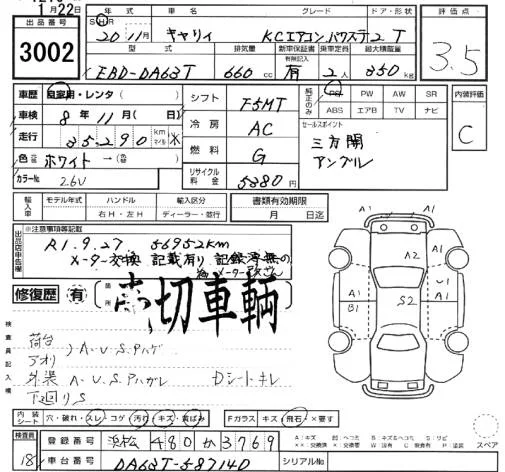 22日
出品番号 年式 車名 グレード ドア・形状 評価点
3002
20年11月 キャリイ KCエアコンパワステ 2 T
3.5
型式 排気量 新車保証書 乗車定員 最大積載量
EBD-DA63T 660cc 有 2人 350kg
車歴 自家用・レンタ シフト F5MT PS PW AW SR
ABS エアB TV ナビ
内装評価
C
車検 8年11月( 日) 冷房 AC セールスポイント
走行 35,290 km マイル ※ 三方開
燃料 G アングル
色 ホワイト→
カラーNo. 26U リサイクル料金 5380円
輸入車 モデル年式 ハンドル 輸入区分 書類有効期限
右H・左H ディーラー・並行 月 日迄
出品店申告欄 ※注意事項等記載
R1.9.27 56952km
メーター交換 記載有り 記録簿無の為
メーター改ざん
修復歴 有 箇所
売切車輌
検査員記入欄
荷台
アオリ A・U・Sハゲ
外装 A・U・Sハガレ Dシートキレ
下廻りS
A1 A1
A2
A1 U1 A1
B1 S2
内装シート 穴・破れ・スレ・コゲ 汚れ・キズ・黄ばみ Fガラス キズ・飛石・×要す
検査員 18 登録番号 浜松 480 か 3769
A:キズ 凹:ヘコミ S:サビ
スペア
車台番号 DA63T-587140 シリアルNo.